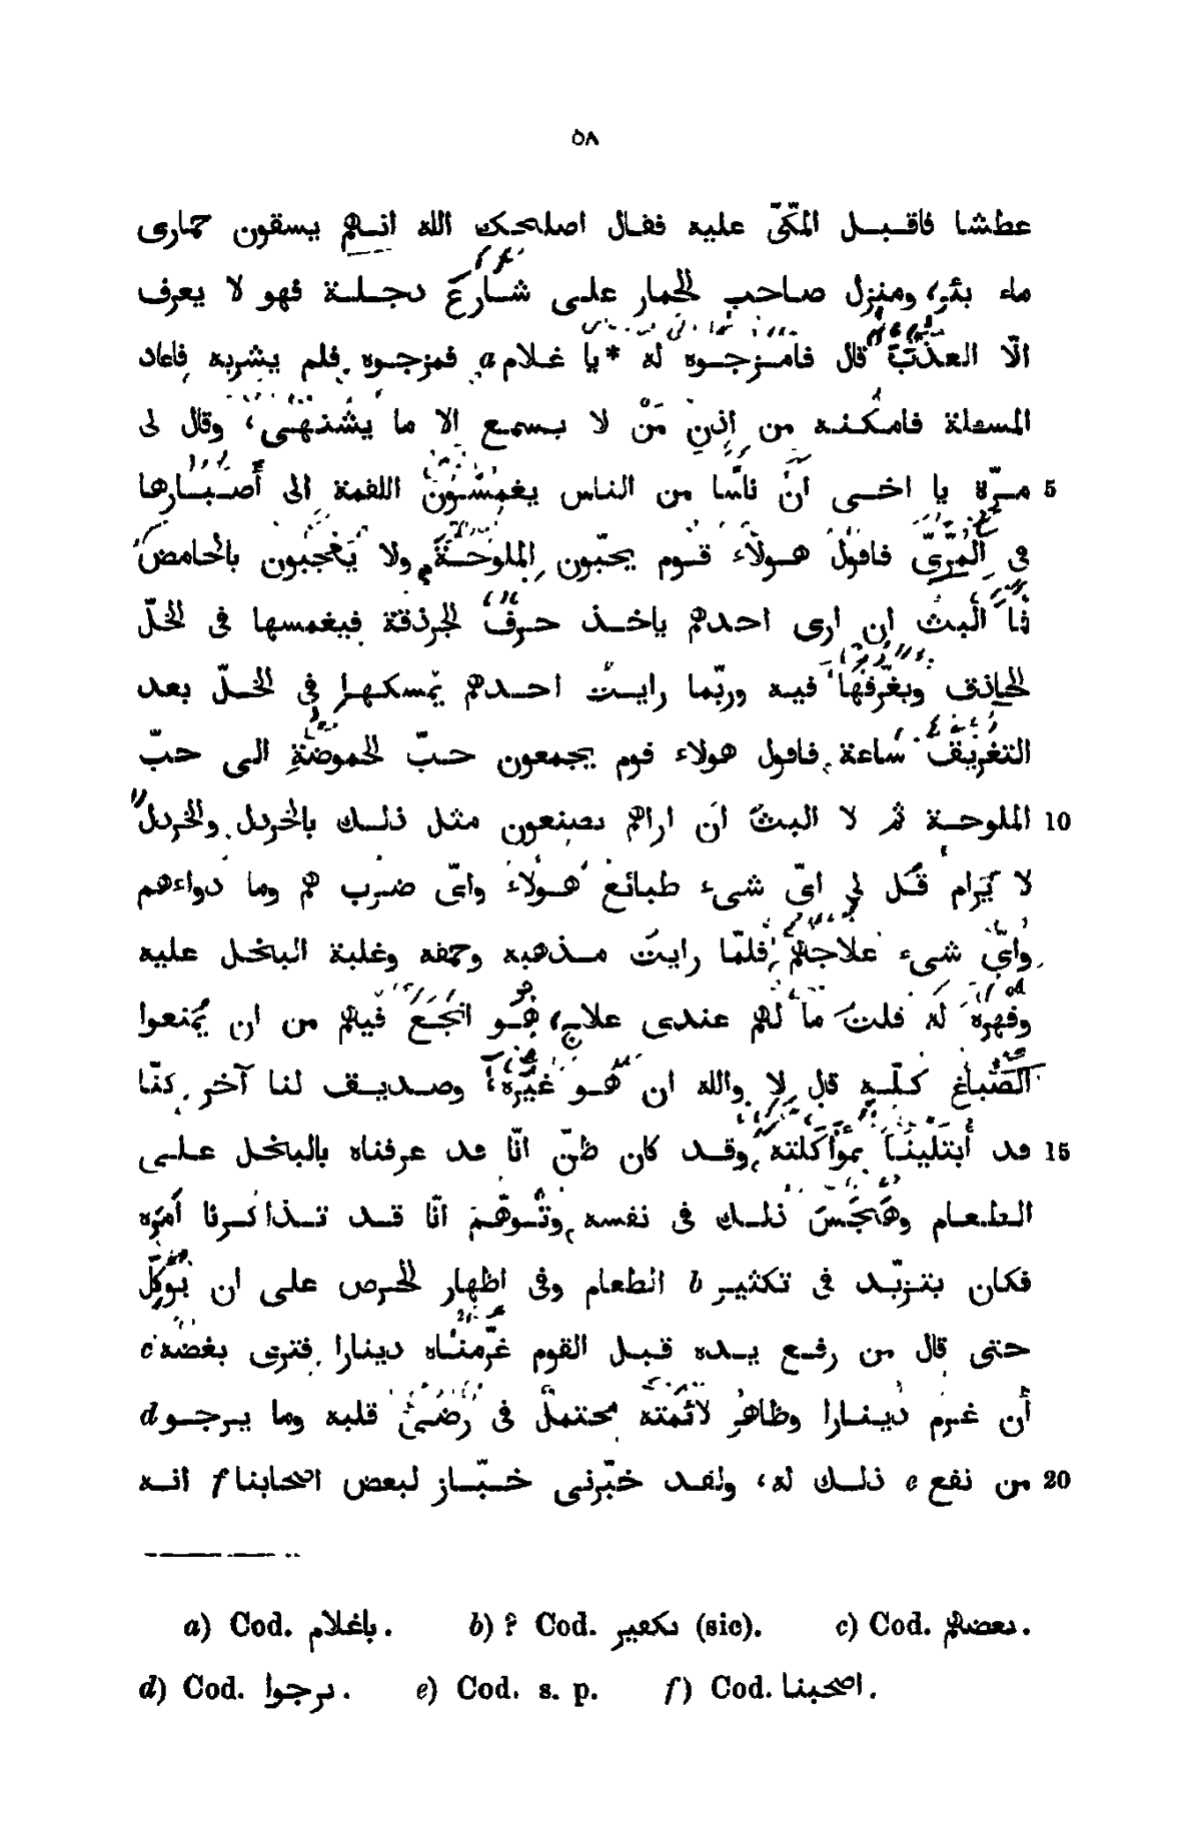 ٥٨
عطشا فاقبل المكّىّ عليه فقال اصلحك الله انهم يسقون حمارى
ماء بئر، ومنزل صاحب الحمار على شارع دجلة فهو لا يعرف
الّا العذب قال فامزجوه له *يا غلام a فمزجوه فلم يشربه فاعاد
المسئلة فامكنه من اذن مَنْ لا يسمع الا ما يشتهى، وقال لى
5 مرّة يا اخى انّ ناسًا من الناس يغمسون اللقمة الى أَصْبارها
فى المُرّىّ فاقول هولاء قوم يحبّون الملوحة ولا يعجبون بالحامض
فما ألبث ان ارى احدهم ياخذ حرف الجرذقة فيغمسها فى الخلّ
الحاذق ويغرّقها فيه وربّما رايت احدهم يمسكها فى الخلّ بعد
التغريق ساعة فاقول هولاء قوم يجمعون حبّ الحموضة الى حبّ
10 الملوحة ثم لا البث ان اراهم يصنعون مثل ذلك بالخردل والخردل
لا يرام قل لى اىّ شىء طبائع هولاء واىّ ضرب هم وما دواءهم
واىّ شىء علاجهم فلمّا رايت مذهبه وحمقه وغلبة البخل عليه
وقهره له قلت ما لهم عندى علاج، هو انجع فيهم من ان يمنعوا
الصّباغ كلّه قل لا والله ان هو غيره، وصديق لنا آخر كنّا
15 قد أبتلينا بمؤاكلته وقد كان ظنّ انّا قد عرفناه بالبخل على
الطعام وهجس ذلك فى نفسه وتوهّم انّا قد تذاكرنا أمره
فكان يتزيّد فى تكثير b الطعام وفى اظهار الحرص على ان يؤكل
حتى قال من رفع يده قبل القوم غرّمناه دينارا فترى بغضه c
أن غرم دينارا وظاهر لائمته محتمل فى رضى قلبه وما يرجو d
20 من نفع e ذلك له، ولقد خبّرنى خبّاز لبعض اصحابنا f انه
a) Cod. باغلام. b) ? Cod. تكعير (sic). c) Cod. بعضهم.
d) Cod. نرجوا. e) Cod. s. p. f) Cod. اصحبنا.